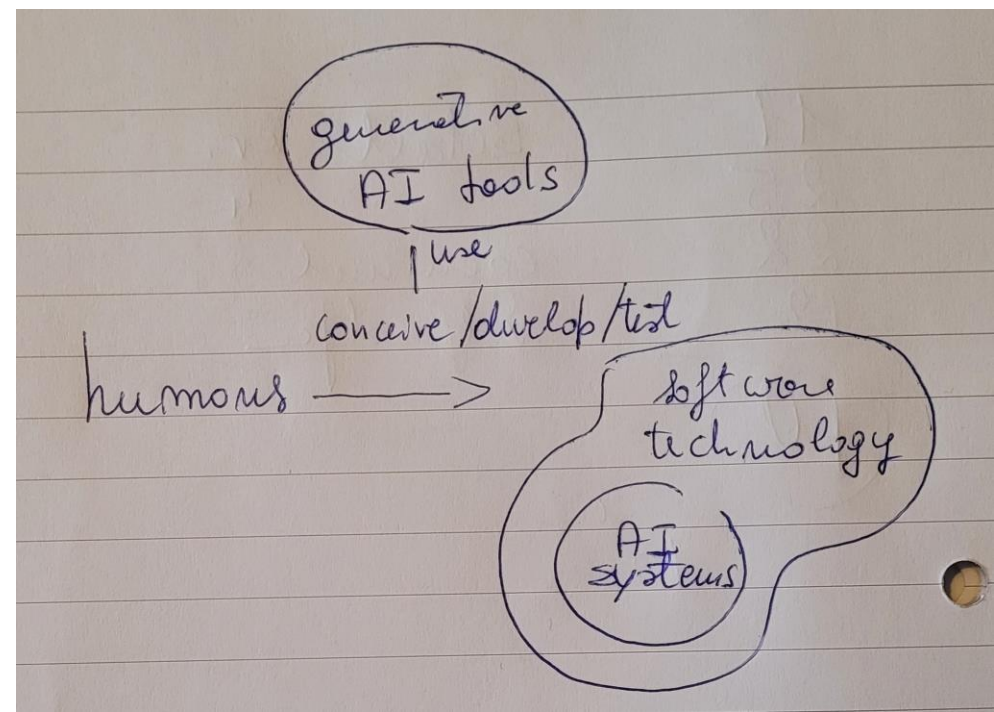 generative
AI tools
use
conceive/develop/test
humans
software
technology
AI
systems